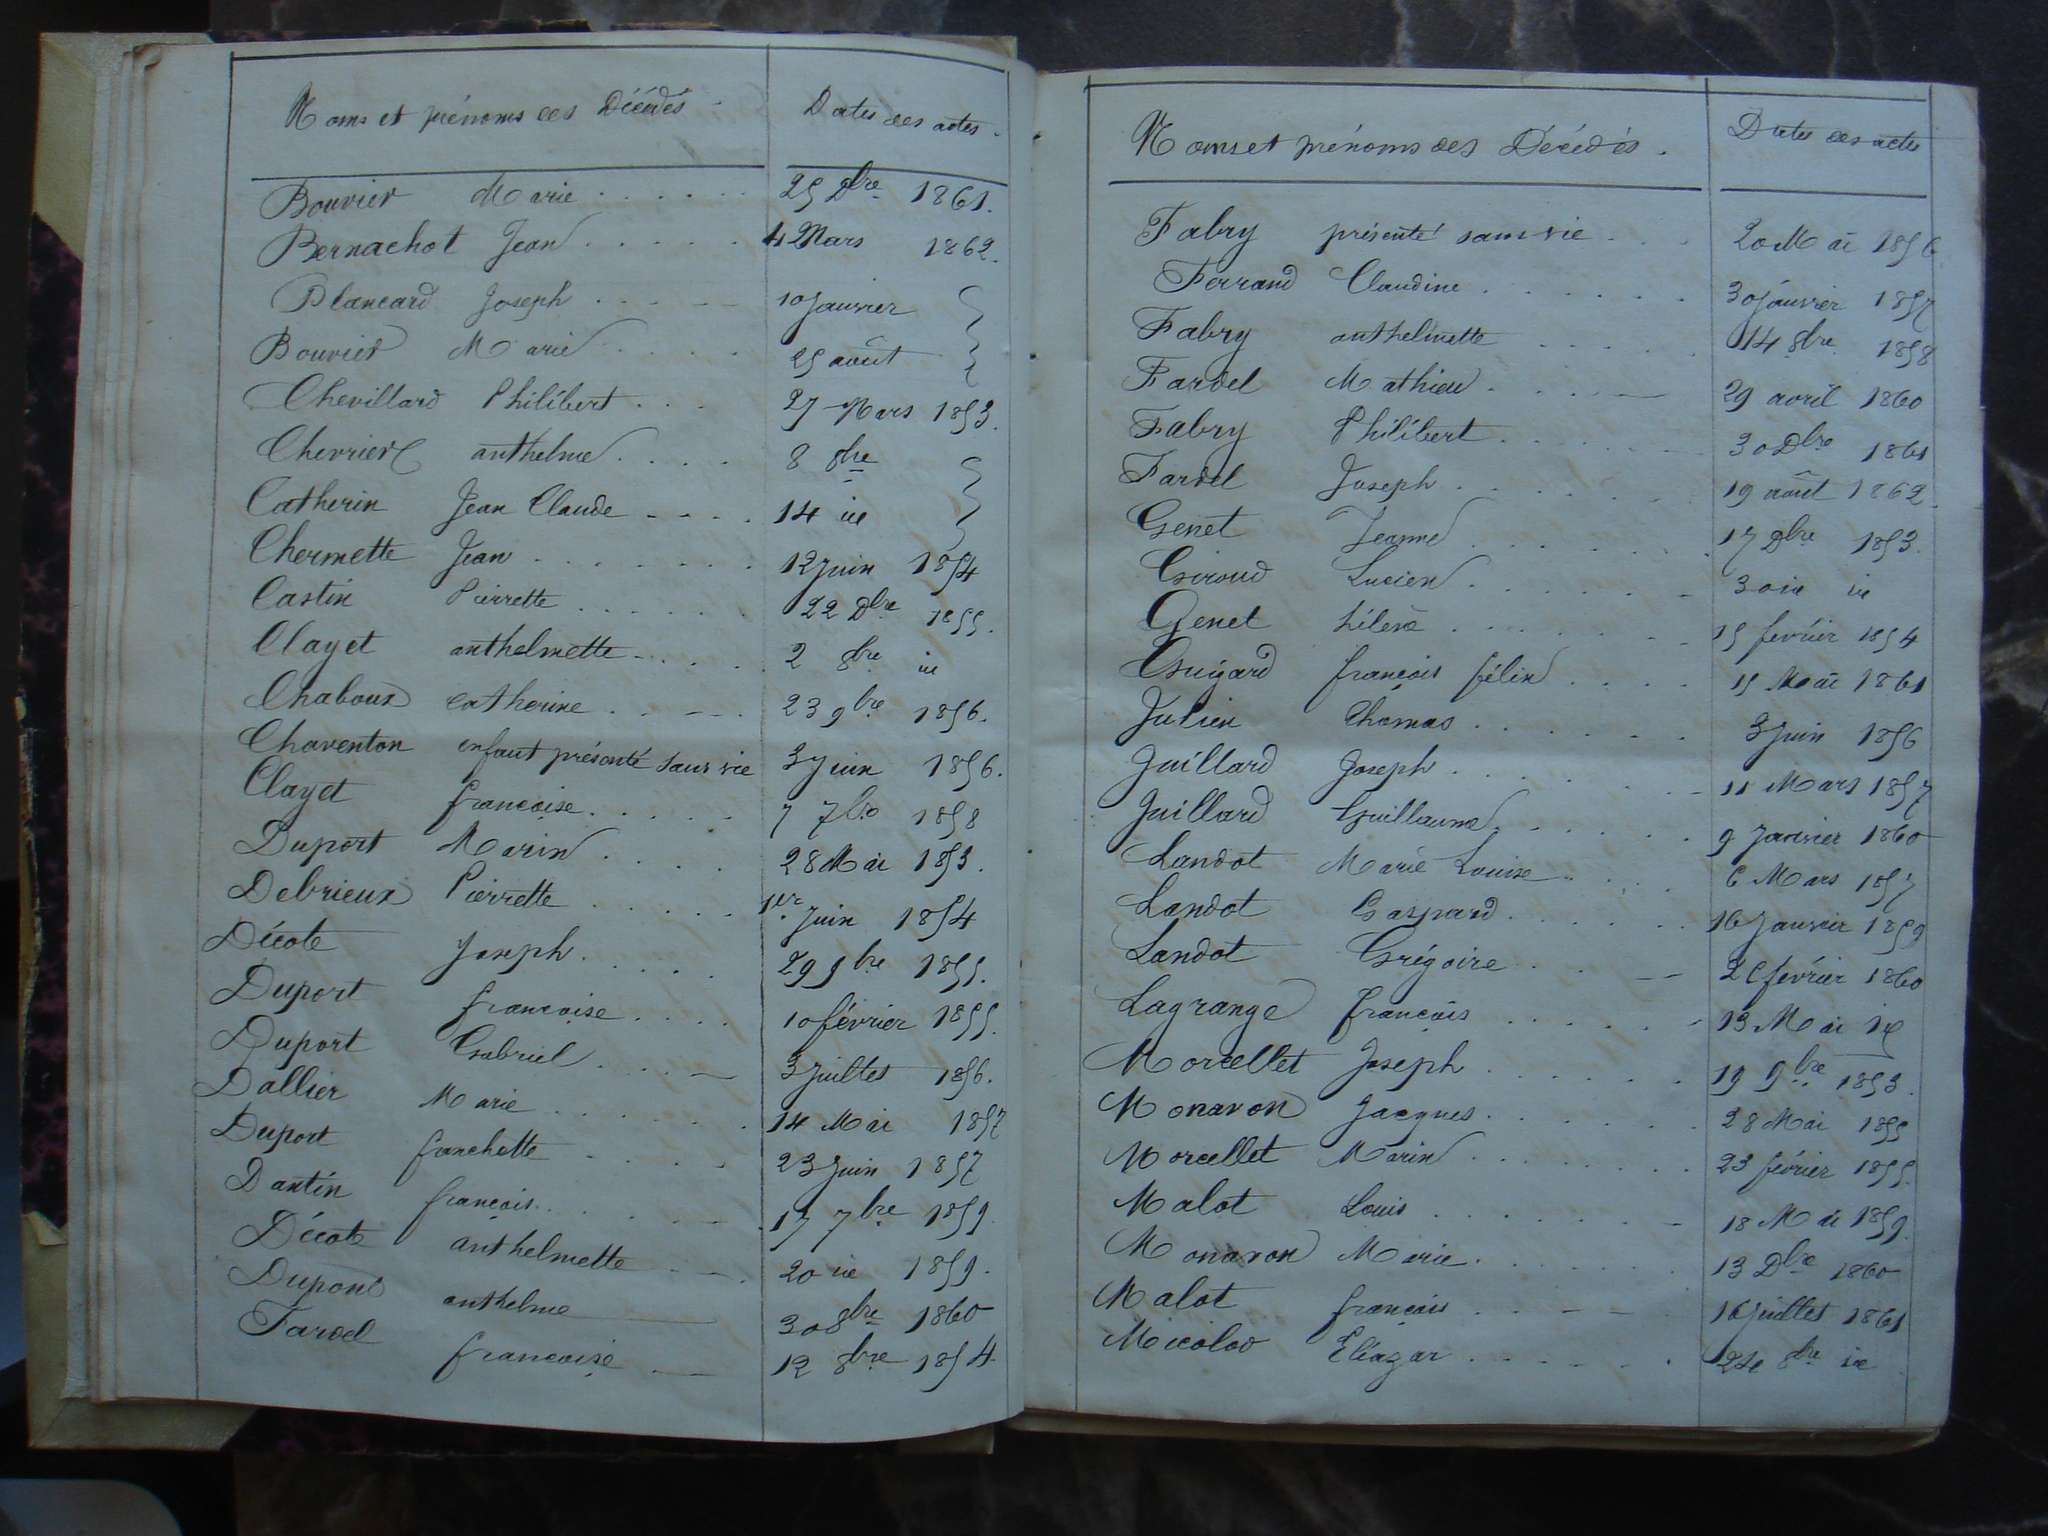 Noms et prénoms des Décédés
Dates des actes.
Bouvier Marie ...... 25 Dbre 1861.
Bernachot Jean ..... 4 Mars 1862.
Blancard Joseph .... 10 Janvier
Bouvier Marie .... 25 août
Chevillard Philibert ... 27 Mars 1853.
Chevrier anthelme .... 8 8bre
Catherin Jean Claude .... 14 id
Chermette Jean ....... 12 Juin 1854
Castin Pierrette ...... 22 Dbre 1855.
Clayet anthelmette ..... 2 8bre id
Chaboux catherine ..... 23 9bre 1856.
Chaventon enfant présenté sans vie 3 Juin 1856.
Clayet françoise ..... 7 7bre 1858
Duport Marin .... 28 Mai 1853.
Debrieux Pierrette ..... 1er Juin 1854
Décote Joseph ..... 29 9bre 1855.
Duport françoise .... 10 février 1855.
Duport Gabriel .... 3 Juillet 1856.
Dallier Marie ...... 14 Mai 1857
Duport franchette ..... 23 Juin 1857
Dantin françois ...... 17 7bre 1859.
Décote anthelmette ... 20 id 1859.
Dupond anthelme 30 8bre 1860
Fardel françoise 12 8bre 1854
Noms et prénoms des Décédés.
Dates des actes
Fabry présenté sans vie ... 20 Mai 1856
Ferrand Claudine ...... 30 Janvier 1857
Fabry anthelmette ..... 14 8bre 1858
Fardel Mathieu ..... 29 avril 1860
Fabry Philibert ..... 30 Dbre 1861
Fardel Joseph ...... 19 août 1862.
Genet Jeanne ...... 17 Dbre 1853.
Giroud Lucien ...... 30 id id
Genet hélène ....... 15 février 1854
Guigard françois félin .... 15 Mai 1861
Julien Thomas ...... 3 Juin 1856
Juillard Joseph ...... 11 Mars 1857
Juillard Guillaume ...... 9 Janvier 1860
Landot Marie Louise .... 6 Mars 1857
Landot Gaspard ...... 16 Janvier 1859
Landot Grégoire ... février 1860
Lagrange françois ...... 13 Mai id
Morcellet Joseph ...... 19 9bre 1853.
Monavon Jacques ...... 28 Mai 1855
Morcellet Marin ........ 23 février 1855.
Malot Louis ....... 18 Mai 1859.
Monavon Marie ....... 13 Dbre 1860
Malot françois .... 16 Juillet 1861
Micolod Eléazar ...... 24 8bre id